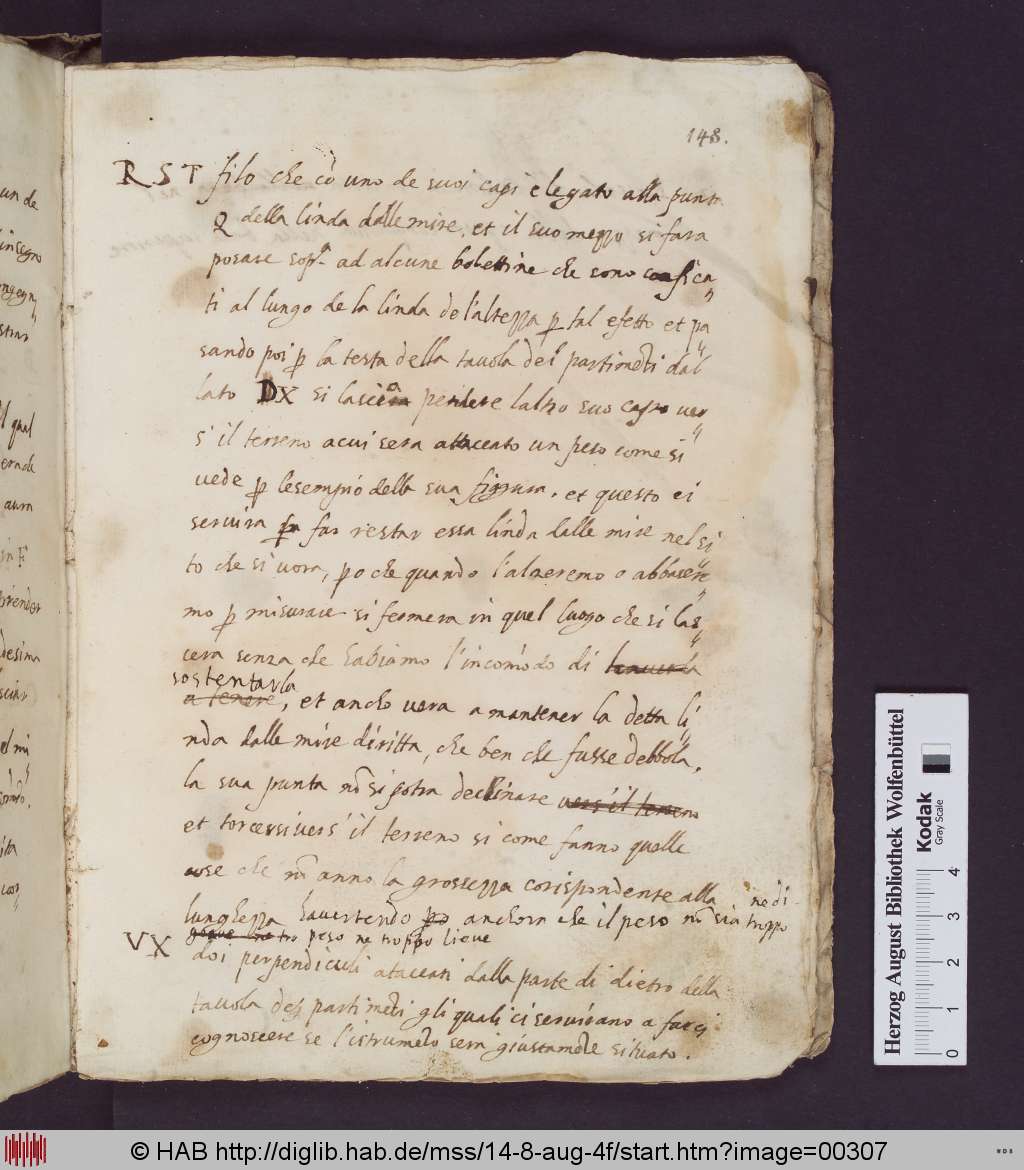 148.
R S T filo che cō uno de suoi capi e legato alla punta
Q della linda dalle mire, et il suo mezzo si fara
posare sopᵃ ad alcune bolettine che sono confica„
ti al lungo de la linda de l'altezza p tal efetto et pa„
sando poi p la testa della tavola dei partimēti dal„
lato DX si lasciera pendere laltro suo capo ver„
s' il terreno a cui sera attaccato un peso come si
vede p lesempio della sua figura, et questo ci
servira p far restar essa linda dalle mire nel si„
to che si vora, po che quando l'alzeremo o abbasere„
mo p misurare si fermera in quel luogo che si las„
cera senza che habiamo l'incomōdo di tenerla
sostentarla
a tenere, et ancho vora a mantener la detta li„
nda dalle mire diritta, che ben che fusse debbola,
la sua punta nō si potra declinare vers'il terreno
et torcersi vers' il terreno si come fanno quelle
cose che nō anno la grossezza corispondente alla
lunghezza havertendo po anchora che il peso nō sia troppo ne di-
peso ne troppo lieve
VX doi perpendiculi ataccati dalla parte di dietro della
tavola dei partimēti gli quali ci servirano a farci
cognoscere se l'istrumēto sera giustamēte situato.
un de
insegno
qual
aura
in F
desima
el mi
ita
Herzog August Bibliothek Wolfenbüttel
Kodak
Gray Scale
0 1 2 3 4
© HAB http://diglib.hab.de/mss/14-8-aug-4f/start.htm?image=00307